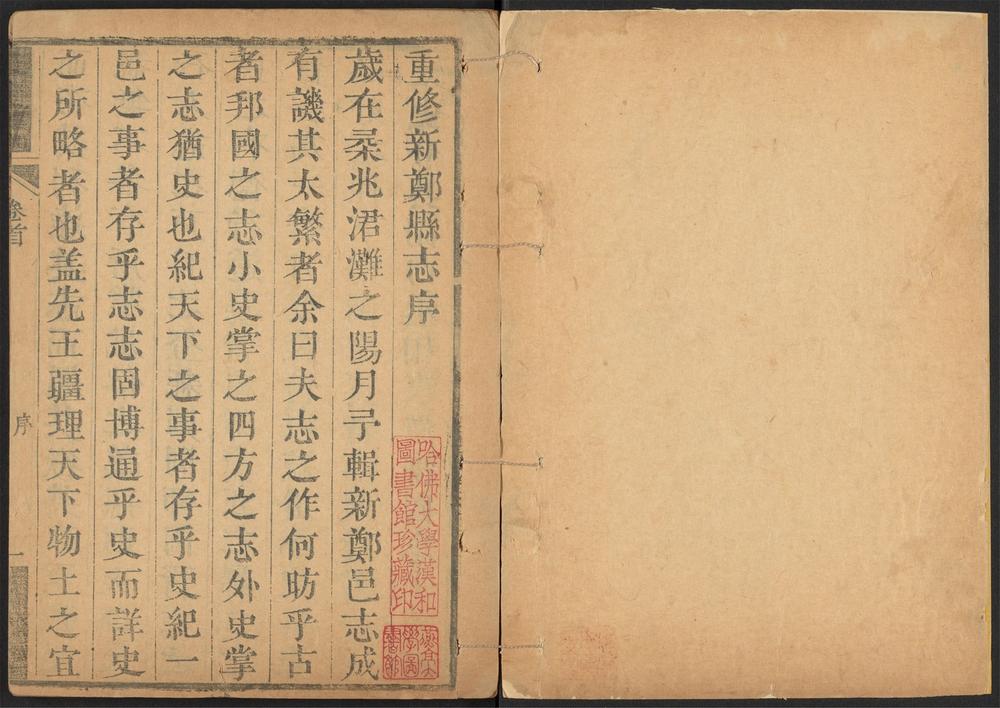 重修新鄭縣志序
歲在柔兆涒灘之陽月予輯新鄭邑志成
有譏其太繁者余曰夫志之作何昉乎古
者邦國之志小史掌之四方之志外史掌
之志猶史也紀天下之事者存乎史紀一
邑之事者存乎志志固博通乎史而詳史
之所略者也盖先王疆理天下物土之宜
卷首
序
一
哈佛大學漢和
圖書館珍藏印